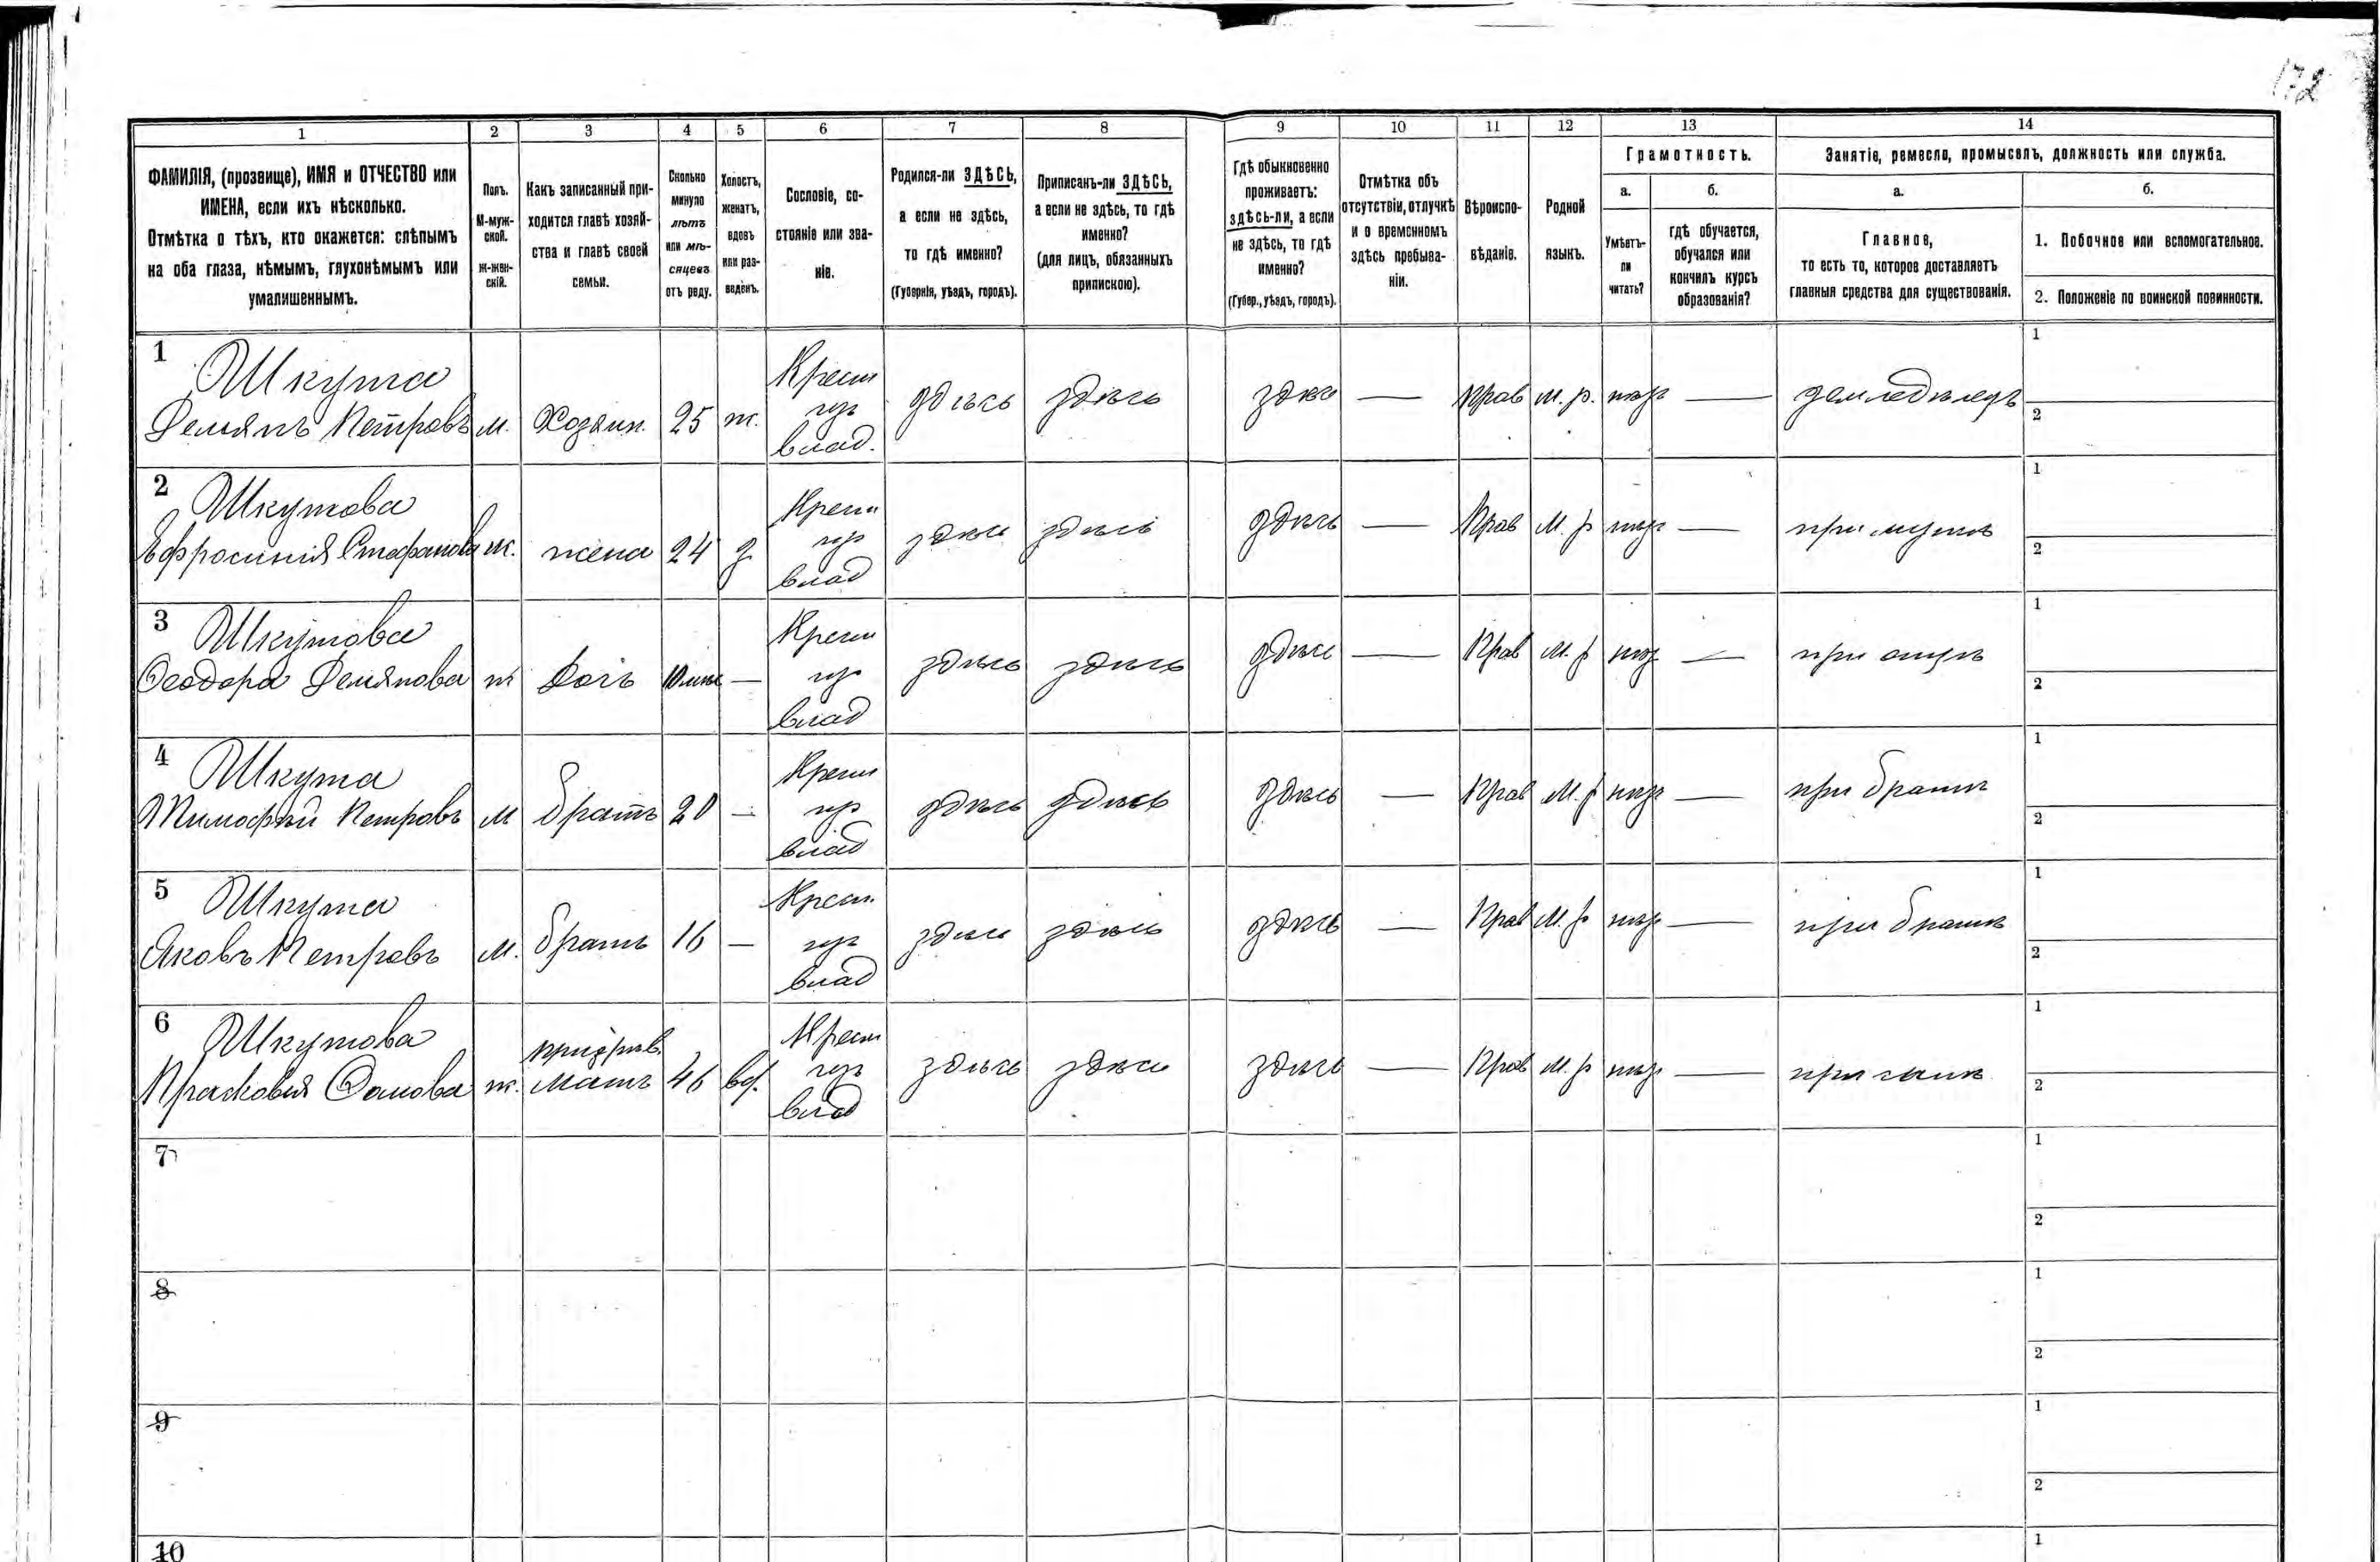 172
1 2 3 4 5 6 7 8 9 10 11 12 13 14
ФАМИЛІЯ, (прозвище), ИМЯ и ОТЧЕСТВО или
ИМЕНА, если ихъ нѣсколько.
Отмѣтка о тѣхъ, кто окажется: слѣпымъ
на оба глаза, нѣмымъ, глухонѣмымъ или
умалишеннымъ.
Полъ.
М-муж-
ской.
Ж-жен-
скій.
Какъ записанный при-
ходится главѣ хозяй-
ства и главѣ своей
семьи.
Сколько
минуло
лѣтъ
или мѣ-
сяцевъ
отъ роду.
Холостъ,
женатъ,
вдовъ
или раз-
веденъ.
Сословіе, со-
стояніе или зва-
ніе.
Родился-ли ЗДѢСЬ,
а если не здѣсь,
то гдѣ именно?
(Губернія, уѣздъ, городъ).
Приписанъ-ли ЗДѢСЬ,
а если не здѣсь, то гдѣ
именно?
(для лицъ, обязанныхъ
припискою).
Гдѣ обыкновенно
проживаетъ:
здѣсь-ли, а если
не здѣсь, то гдѣ
именно?
(Губер., уѣздъ, городъ).
Отмѣтка объ
отсутствіи, отлучкѣ
и о временномъ
здѣсь пребыва-
ніи.
Вѣроиспо-
вѣданіе.
Родной
языкъ.
Грамотность.
а.
Умѣетъ-
ли
читать?
б.
гдѣ обучается,
обучался или
кончилъ курсъ
образованія?
Занятіе, ремесло, промыселъ, должность или служба.
а.
Главное,
то есть то, которое доставляетъ
главныя средства для существованія.
б.
1. Побочное или вспомогательное.
2. Положеніе по воинской повинности.
1 Шкута
Демянъ Петровъ м. Хозяин. 25 ж. Крест влад. здѣсь здѣсь здѣсь — прав м. р. — земледѣлецъ 1 2
2 Шкутова
Ефросинія Стефанова ж. жена 24 з Крест влад здѣсь здѣсь здѣсь — Прав М. р — при мужѣ 1 2
3 Шкутова
Феодора Демянова ж дочь 10 мѣс — Крест влад здѣсь здѣсь здѣсь — Прав М. р — при отцѣ 1 2
4 Шкута
Тимофѣй Петровъ м братъ 20 — Крест влад здѣсь здѣсь здѣсь — Прав М. р — при братѣ 1 2
5 Шкута
Яковъ Петровъ м. братъ 16 — Крест. влад здѣсь здѣсь здѣсь — Прав М. р — при братѣ 1 2
6 Шкутова
Прасковія Фомова ж. мать 46 вд. Крест влад здѣсь здѣсь здѣсь — Прав М. р — при сынѣ 1 2
7 1 2
8 1 2
9 1 2
10 1